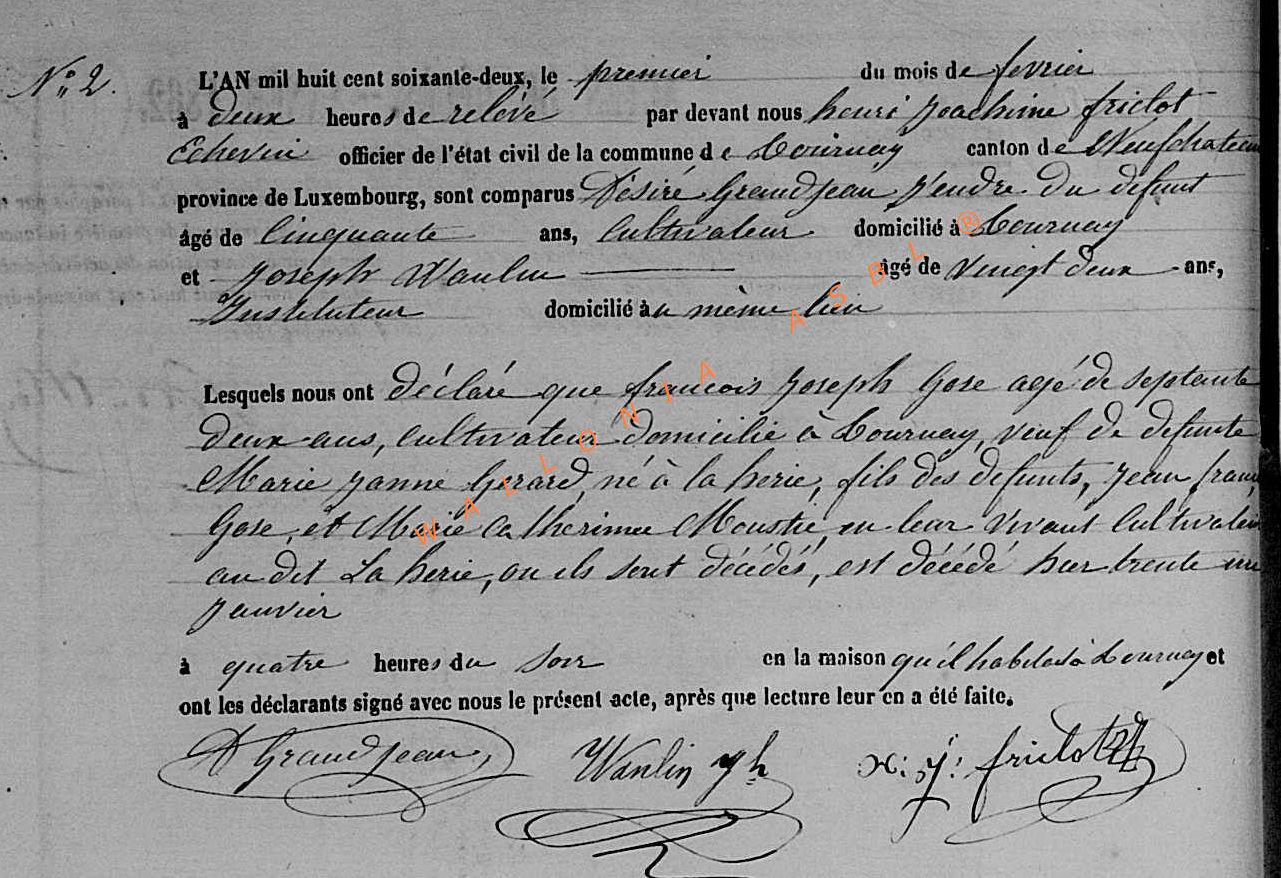 N°: 2.
L'AN mil huit cent soixante-deux, le premier du mois de fevrier
à deux heures de relevé par devant nous henri joachime frictot
Echevin officier de l'état civil de la commune de Tournay canton de Neufchateau
province de Luxembourg, sont comparus Désiré Grandjean gendre du défunt
âgé de Cinquante ans, Cultivateur domicilié à Tournay
et Joseph Wanlin âgé de vingt deux ans,
Instituteur domicilié au même lieu
Lesquels nous ont déclaré que francois joseph Gose agé de septante
deux ans, Cultivateur domicilié à Tournay, veuf de defunte
Marie janne Gerard, né à la herie, fils des defunts, jean fran
Gose, et Marie Catherinne Moustie, en leur vivant Cultivateur
au dit La herie, ou ils sont décédés, est décédé hier trente un
janvier
à quatre heures du soir en la maison qu'il habitait à Tournay et
ont les déclarants signé avec nous le présent acte, après que lecture leur en a été faite.
D Grandjean Wanlin jh h: j: frictot
WALLONIA ASBL ®